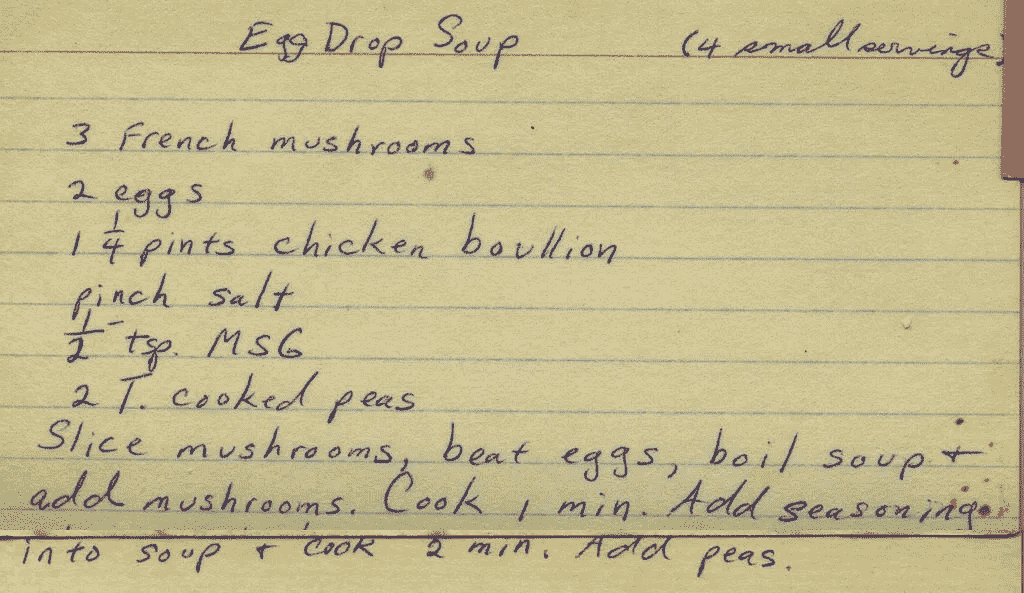 Egg Drop Soup (4 small servings)
3 French mushrooms
2 eggs
1 1/4 pints chicken boullion
pinch salt
1/2 tsp. MSG
2 T. cooked peas
Slice mushrooms, beat eggs, boil soup +
add mushrooms. Cook 1 min. Add seasoning
into soup + cook 2 min. Add peas.